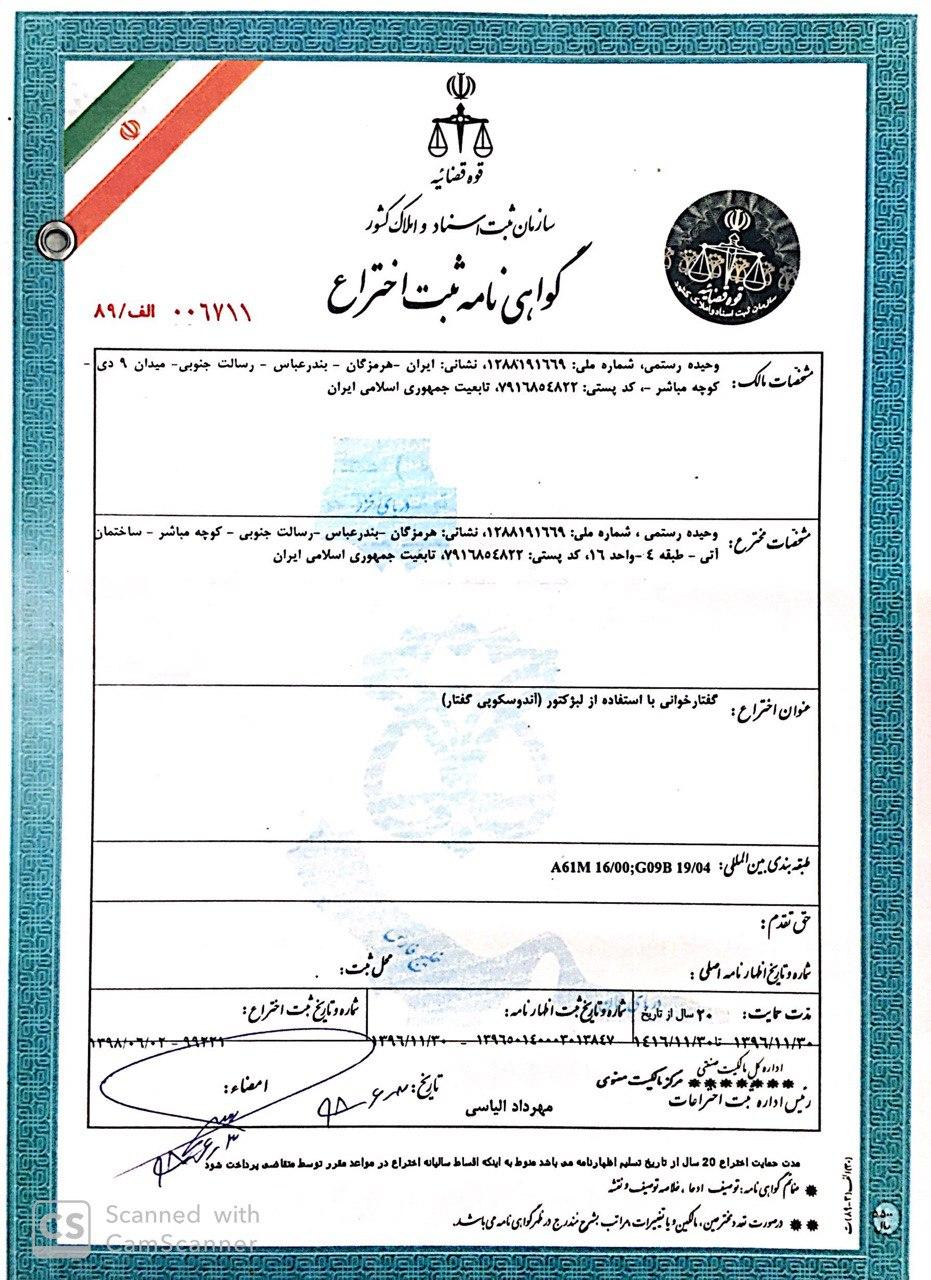 قوه قضائیه
سازمان ثبت اسناد و املاک کشور
گواهی نامه ثبت اختراع
۰۰٦۷۱۱ الف/۸۹
قوه قضائیه
سازمان ثبت اسناد و املاک کشور
مشخصات مالک: وحیده رستمی، شماره ملی: ۱۲۸۸۱۹۱٦٦۹، نشانی: ایران -هرمزگان - بندرعباس - رسالت جنوبی- میدان ۹ دی -
کوچه مباشر -، کد پستی: ۷۹۱٦۸٥٤۸۲۲، تابعیت جمهوری اسلامی ایران
دریای خزر
مشخصات مخترع: وحیده رستمی ، شماره ملی: ۱۲۸۸۱۹۱٦٦۹، نشانی: هرمزگان -بندرعباس -رسالت جنوبی - کوچه مباشر - ساختمان
آتی - طبقه ٤ -واحد ۱٦، کد پستی: ۷۹۱٦۸٥٤۸۲۲، تابعیت جمهوری اسلامی ایران
عنوان اختراع: گفتارخوانی با استفاده از لبژکتور (آندوسکوپی گفتار)
طبقه بندی بین المللی: A61M 16/00;G09B 19/04
حق تقدم:
خلیج فارس
شماره و تاریخ اظهارنامه اصلی: محل ثبت:
مدت حمایت: ۲۰ سال از تاریخ شماره و تاریخ ثبت اظهارنامه: شماره و تاریخ ثبت اختراع:
۱۳۹٦/۱۱/۳۰ تا ۱٤۱٦/۱۱/۳۰ ۱۳۹٦٥۰۱٤۰۰۰۳۰۱۳۸٤۷ - ۱۳۹٦/۱۱/۳۰ ۹۹۲۲۱ - ۱۳۹۸/۰٦/۰۲
اداره کل مالکیت صنعتی
******* مرکز مالکیت معنوی تاریخ: امضاء:
رئیس اداره ثبت اختراعات مهرداد الیاسی
مدت حمایت اختراع 20 سال از تاریخ تسلیم اظهارنامه می باشد منوط به اینکه اقساط سالیانه اختراع در مواعد مقرر توسط متقاضی پرداخت شود
* ضمائم گواهی نامه: توصیف، ادعا، خلاصه توصیف و نقشه
** در صورت تعدد مخترعین، مالکین و یا تغییرات، مراتب بشرح مندرج در ظهر گواهی نامه می باشد.
CS Scanned with
CamScanner